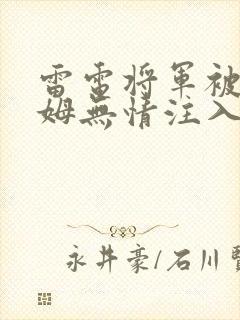 雷雷将軍被
姆無情注入
永井豪/石川